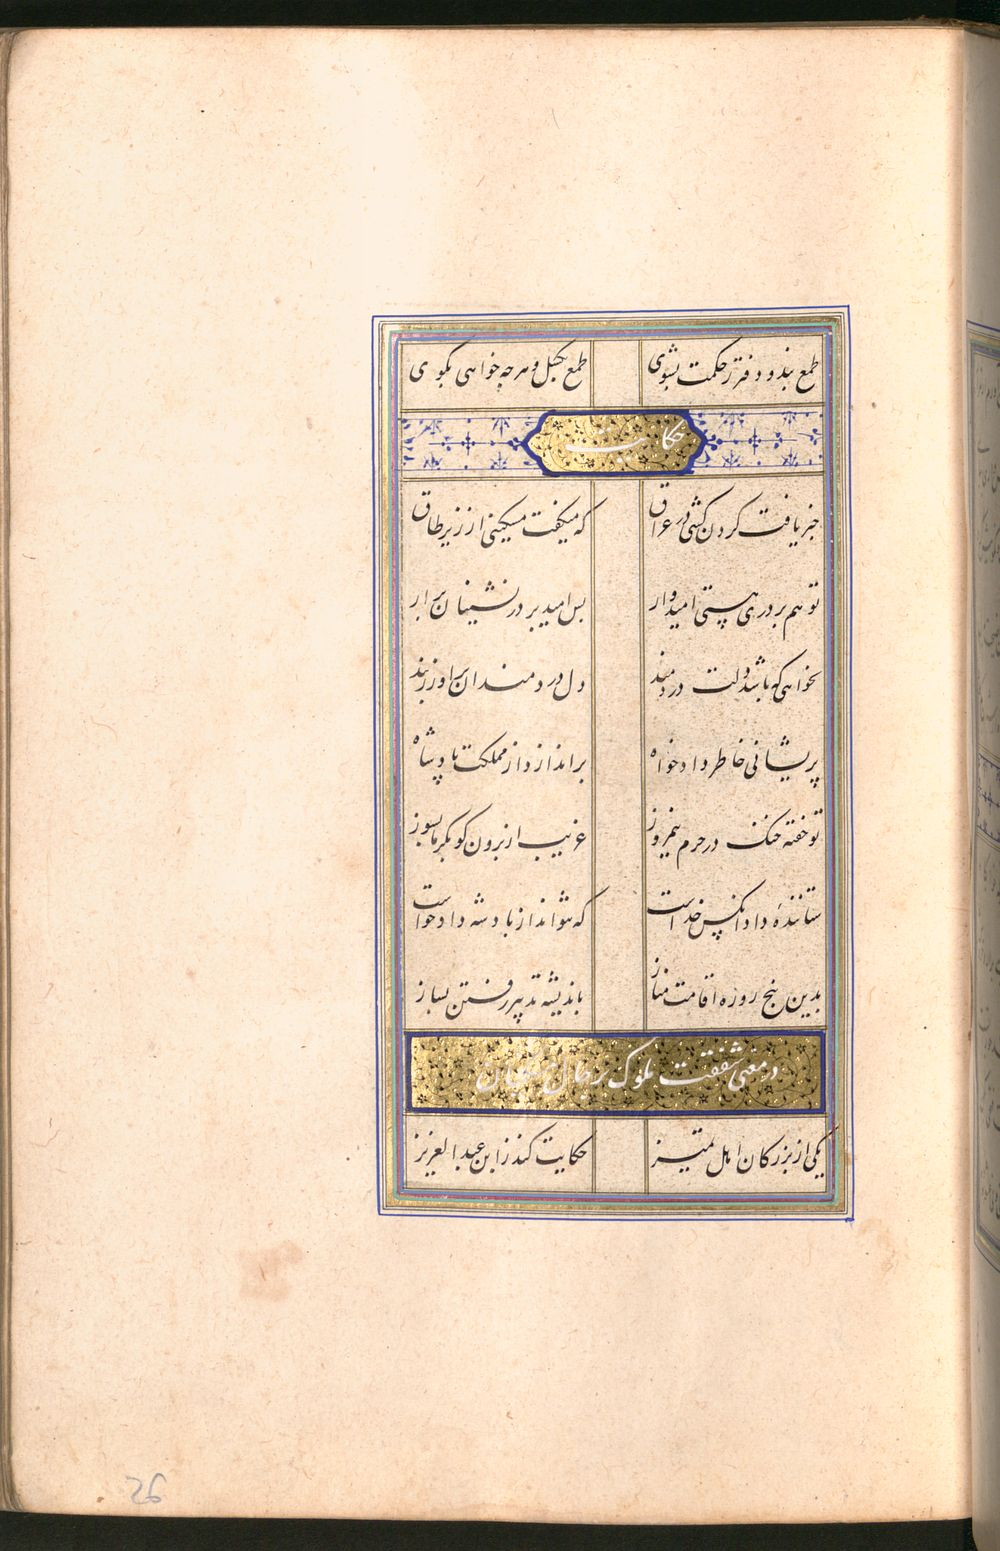 طمع بند و دفتر ز حکمت بشوی طمع بکسل و هرچه خواهی بکوی
حکایت
خبر یافت کردن کشی در عراق که میکفت مسکینی از زیر طاق
تو هم بر دری هستی امیدوار بس امید بر در نشینان برار
نخواهی که باشد دلت دردمند دل دردمندان براور ز بند
پریشانی خاطر دادخواه براندازد از مملکت پادشاه
تو خفته خنک در حرم نیمروز غریب از برون کو بکرما بسوز
ستاننده داد انکس خداست که نتواند از پادشه دادخواست
بدین پنج روزه اقامت مناز باندیشه تدبیر رفتن بساز
در معنی شفقت ملوک بر حال
یکی از بزرکان اهل تمیز حکایت کند ز ابن عبد العزیز
26